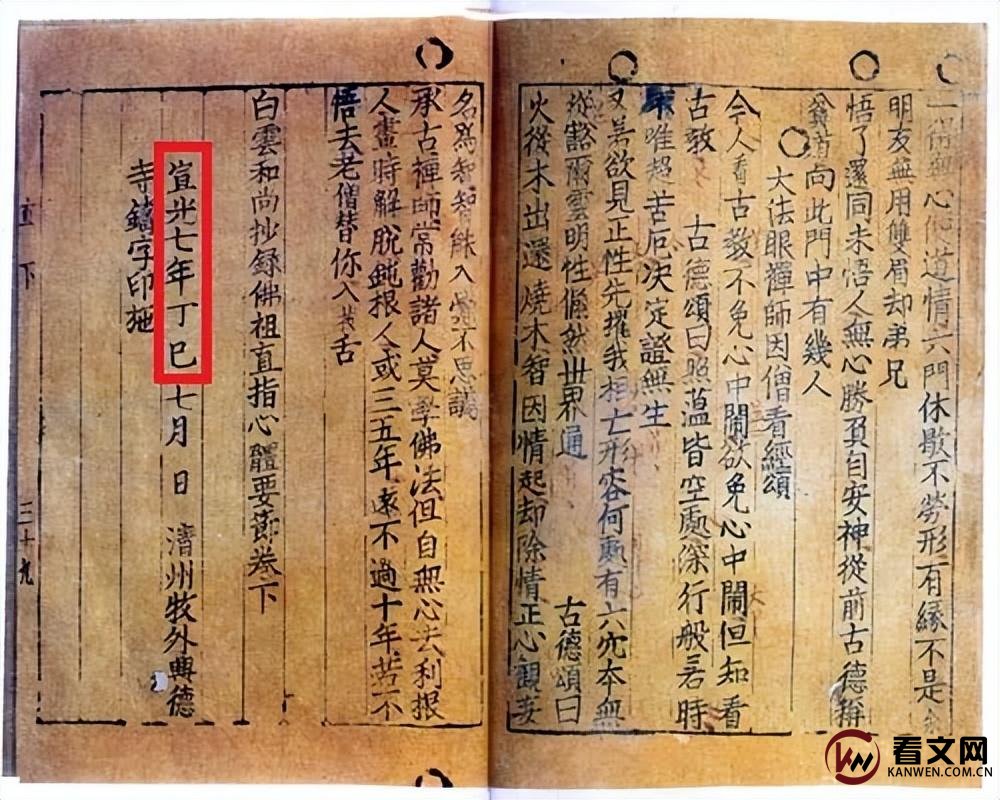 一得無心便道情六門休歇不勞形有緣不是余
明友無用雙眉却弟兄
悟了還同未悟人無心勝負自安神從前古德稱
貧道向此門中有幾人
大法眼禪師因僧看經頌
今人看古教不免心中鬧欲免心中鬧但知看
古教 古德頌曰照蘊皆空處深行般若時
唯超苦厄決定證無生
又若欲見正性先摧我相亡形容何處有六穴本無
從豁爾雲明性翛然世界通 古德頌曰
火從木出還燒木智因情起却除情正心觀妄
名爲智智能入覺不思議
承古禪師常勸諸人莫學佛法但自無心去利根
人晝時解脫鈍根人或三五年遠不過十年若不
悟去老僧替你入拔舌
白雲和尚抄錄佛祖直指心體要節卷下
宣光七年丁巳七月 日 清州牧外興德
寺鑄字印施
直下 三十九
看文网
KANWEN.COM.CN